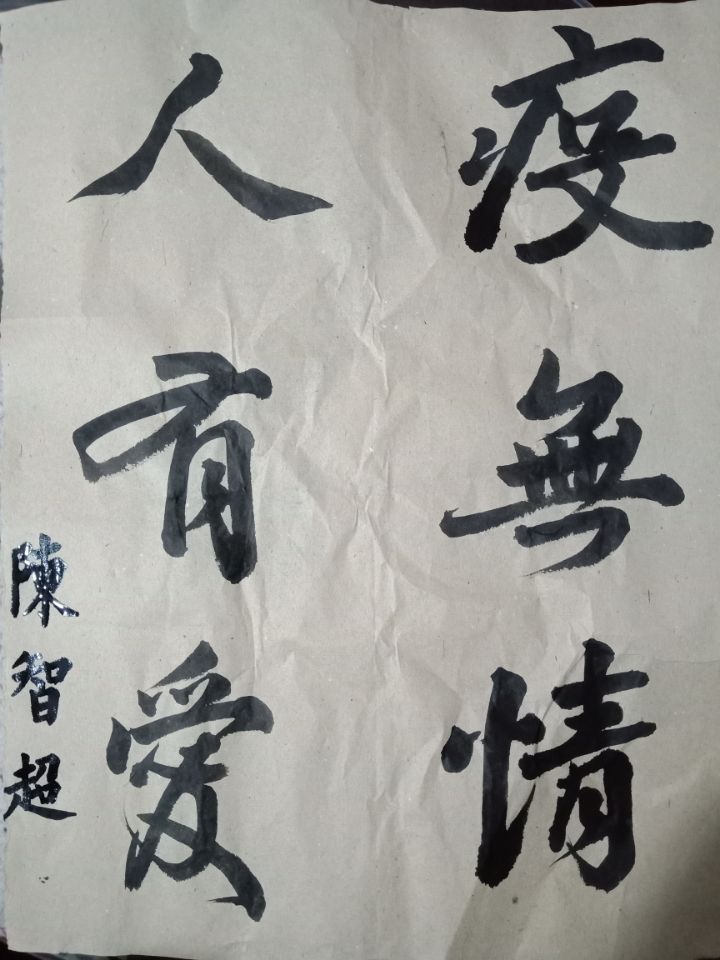 疫無情
人有愛
陳智超